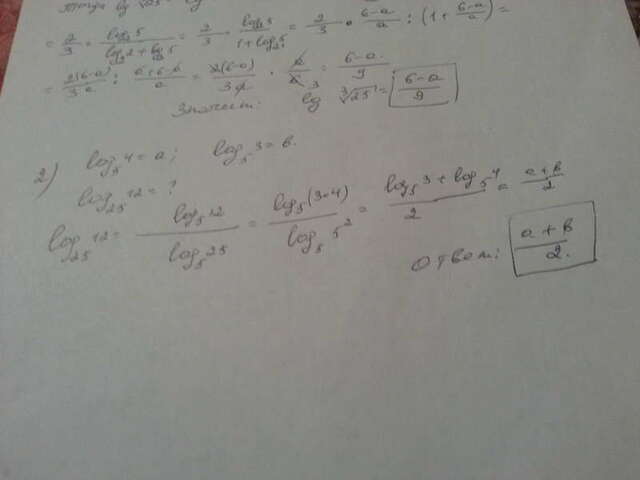 = 2/3 · log₅5 / log₅2 + log₅5 = 2/3 · log₂5 / 1 + log₂5 = 2/3 · 6-a/a : (1 + 6-a/a) =
= 2(6-a)/3a : a+6-a/a = 2(6-a)/3a · a/6 = 6-a/9
Значит: log ∛25 = 6-a/9
2) log₅4 = a; log₅3 = b.
log₂₅12 = ?
log₂₅12 = log₅12 / log₅25 = log₅(3·4) / log₅5² = log₅3 + log₅4 / 2 = a+b/2
Ответ: a+b/2.